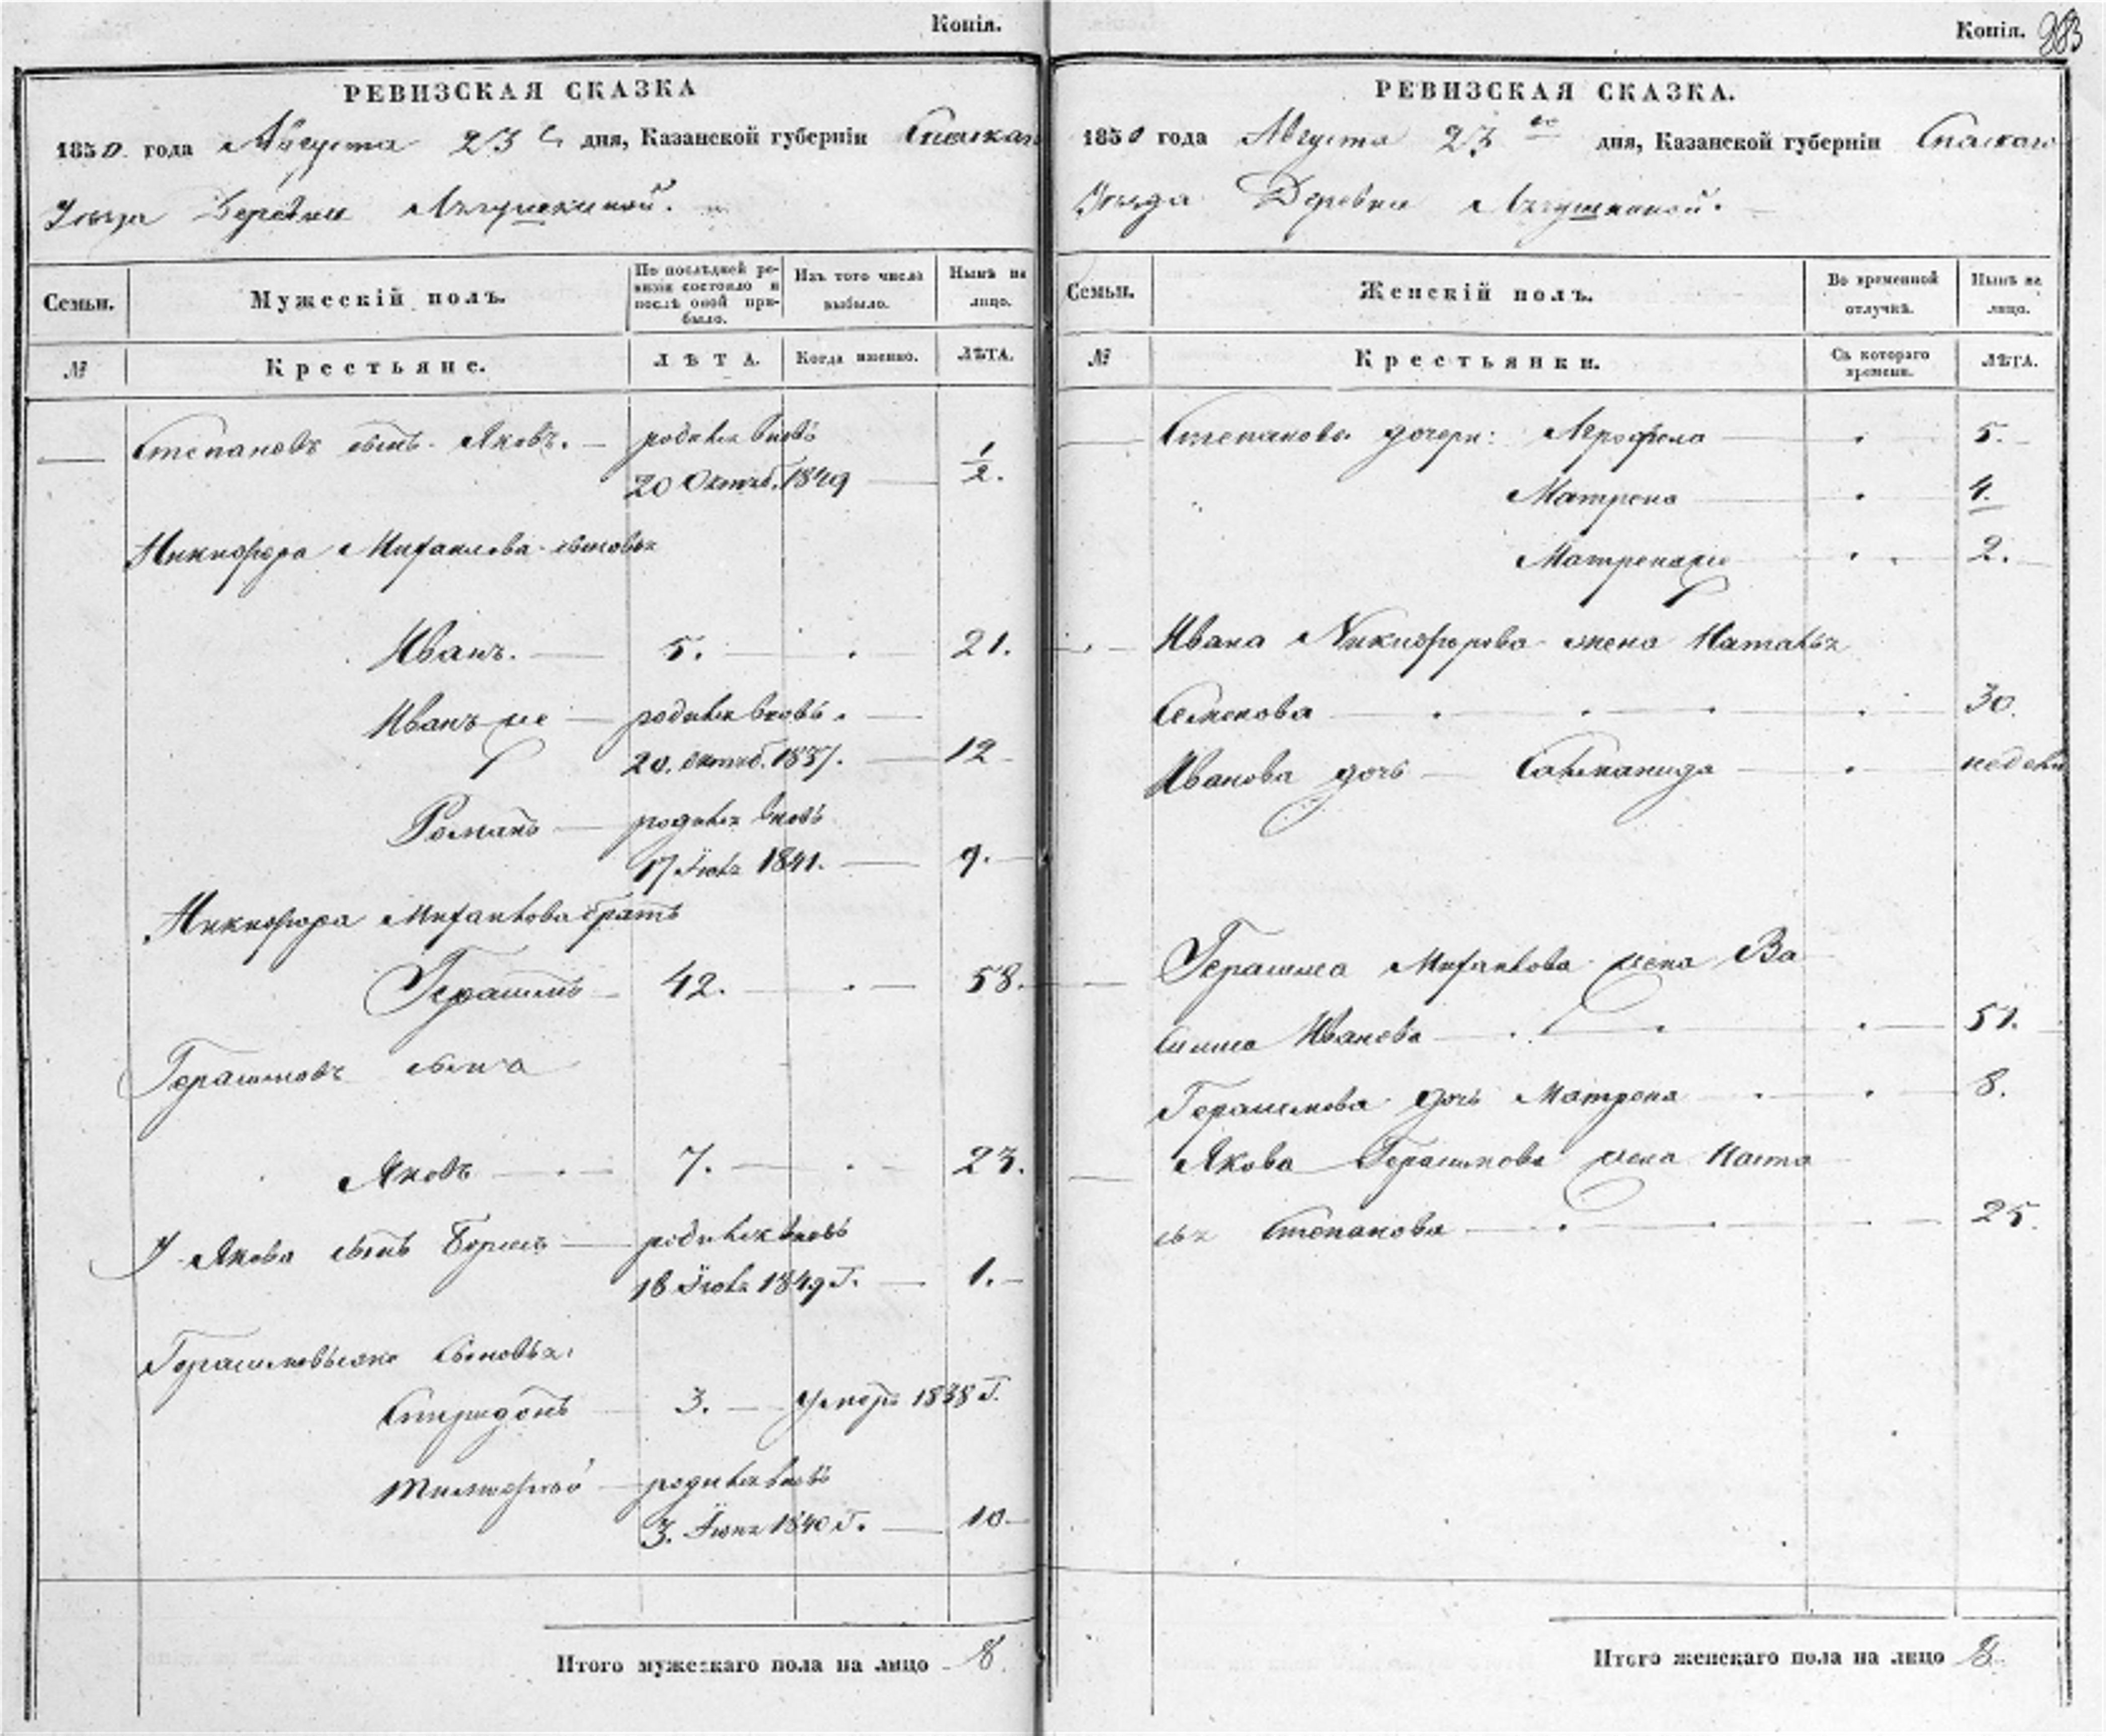 Копія.
РЕВИЗСКАЯ СКАЗКА
1850 года Августа 23 дня, Казанской губерніи Спаскаго
Уѣзда Деревни
Семьи.
Мужескій полъ.
По послѣдней ре-
визіи состояло и
послѣ оной при-
было.
Изъ того числа
выбыло.
Нынѣ на
лицо.
№
Крестьяне.
ЛѢТА.
Когда именно.
ЛѢТА.
Степановъ сынъ Яковъ. родился вновь
20 Октяб. 1849 1/2.
Никифора Михаилова сыновья
Иванъ. 5. 21.
Иванъ же родился вновь.
20. Октяб. 1837. 12
Романъ родился вновь
17 Іюля 1841. 9.
Никифора Михайлова братъ
Герасимъ 42. 58.
Герасимовъ сынъ
Яковъ 7. 23.
У Якова сынъ Борисъ родился вновь
18 Іюля 1849 г. 1.
Герасимовы сыновья:
Спиридонъ 3. Умеръ 1838 г.
Тимофей родился вновь
3. Іюня 1840 г. 10
Итого мужескаго пола на лицо 8.
Копія. 283
РЕВИЗСКАЯ СКАЗКА.
1850 года Августа 23 го дня, Казанской губерніи Спаскаго
Уѣзда Деревни
Семьи.
Женскій полъ.
Во временной
отлучкѣ.
Нынѣ на
лицо.
№
Крестьянки.
Съ котораго
времени.
ЛѢТА.
Степанова дочери: 5.
Матрена 4.
Матрена же 2.
Ивана Никифорова жена Наталья
Семенова 30.
Иванова дочь Степанида недели
Герасима Михайлова жена Ва
силиса Иванова 51.
Герасимова дочь Матрена 8.
Якова Герасимова жена Наста
сья Степанова 25.
Итого женскаго пола на лицо 8.